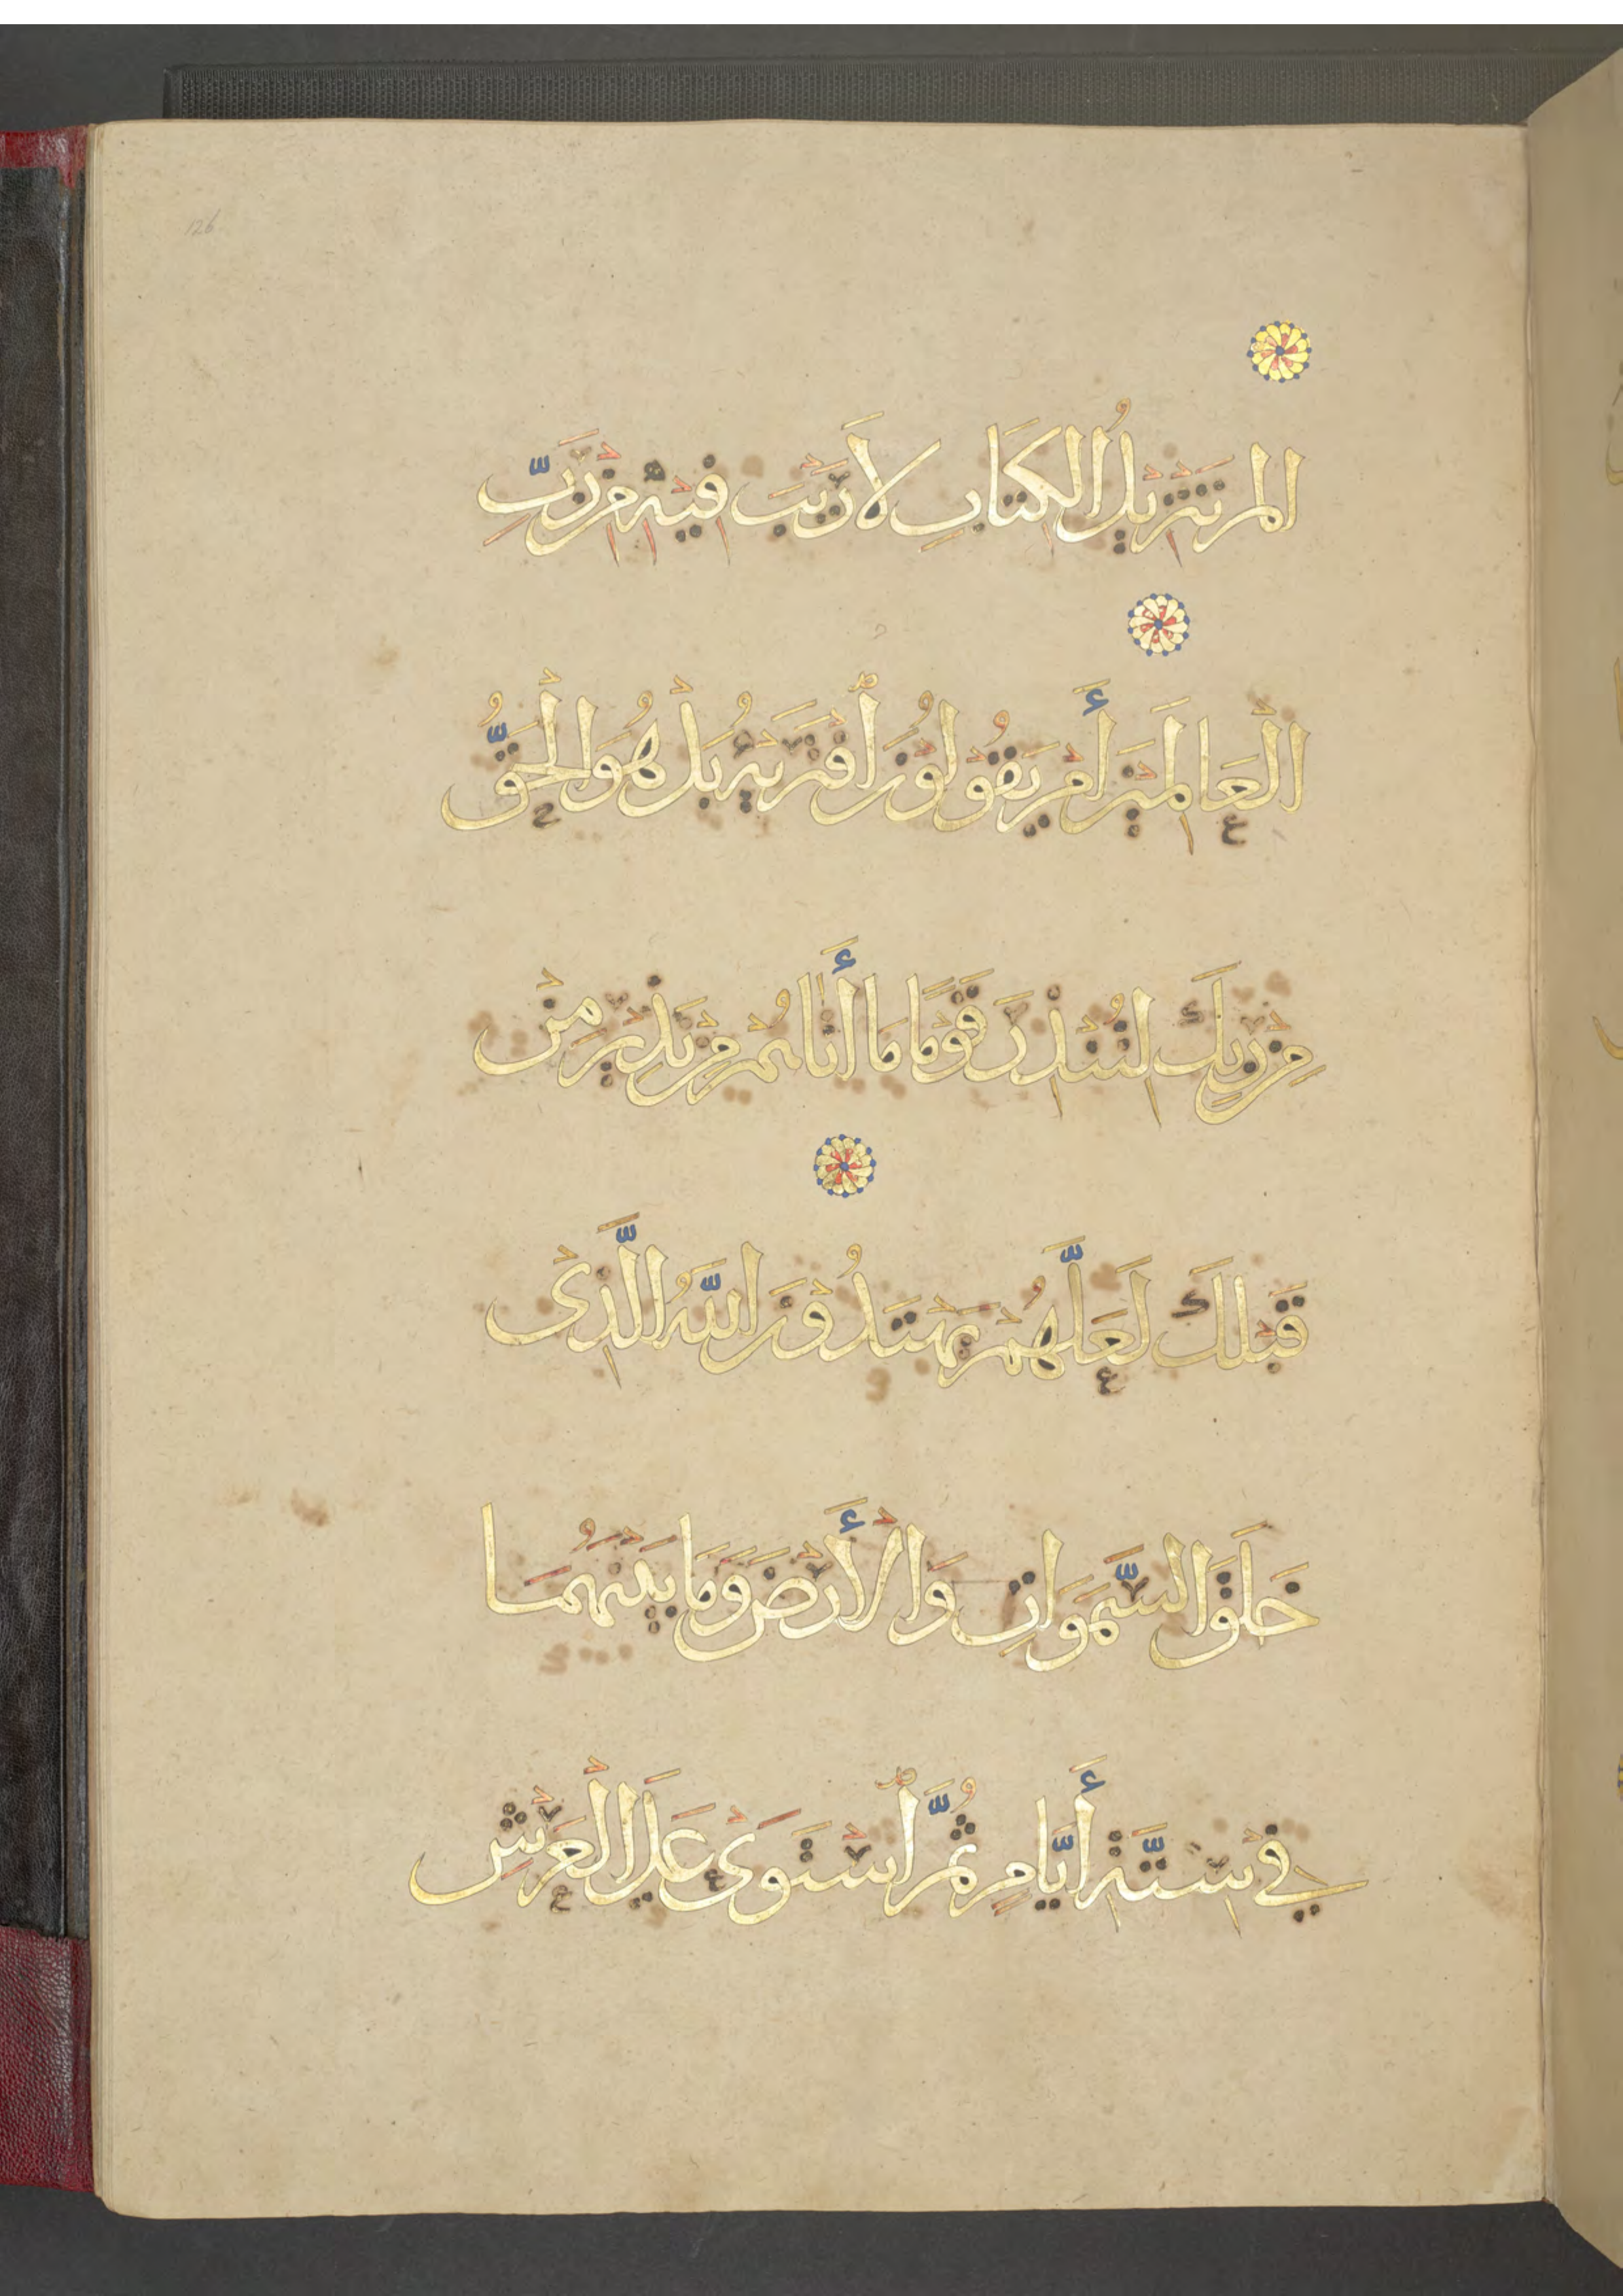 126
الم تَنْزِيْلُ الكِتَابِ لَا رَيْبَ فِيْهِ مِنْ رَبِّ
الْعَالَمِيْنَ أَمْ يَقُوْلُوْنَ ٱفْتَرَيْهُ بَلْ هُوَ الْحَقُّ
مِنْ رَبِّكَ لِتُنْذِرَ قَوْمًا مَا أَتَاهُمْ مِنْ نَذِيْرٍ مِنْ
قَبْلِكَ لَعَلَّهُمْ يَهْتَدُوْنَ اللَّهُ الَّذِىْ
خَلَقَ السَّمَوَاتِ وَالْأَرْضَ وَمَا بَيْنَهُمَا
فِيْ سِتَّةِ أَيَّامٍ ثُمَّ ٱسْتَوَىْ عَلَى الْعَرْشِ